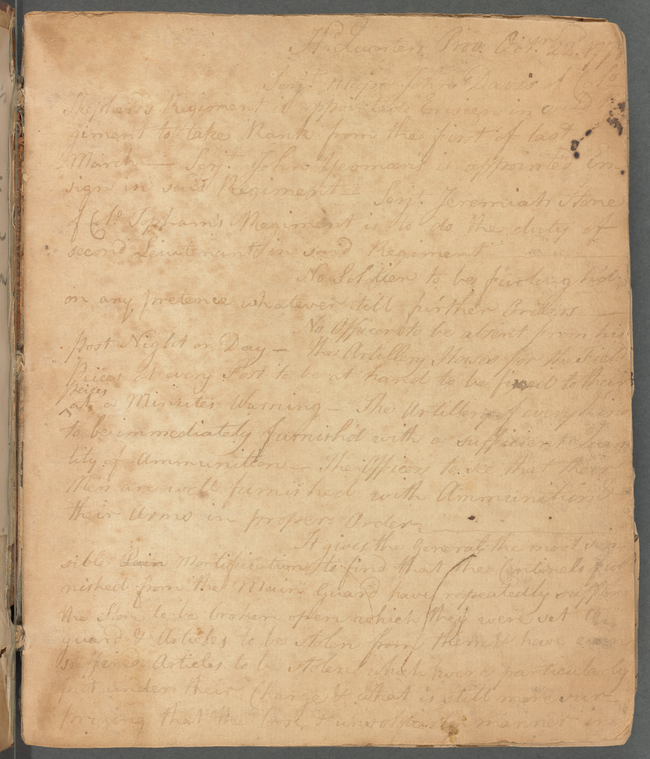 Hd Quarters Prov. Octr. 22. 177
Serjt Major John Davis
Regiment is appointed Ensign in
giment to take Rank from the first of last
March — Serjt John Yeomans is appointed En
sign in said Regiment — Serjt Jeremiah Stone
of Regiment is to do the duty of
second Lieutenant in said Regiment
No Soldier to be furloughed
on any pretence whatever till further Orders
No Officer to be absent from his
post Night or Day — The Artillery Horses for the Field
Peices at every Post to be at hand to be fixed to their
Peices
at a Minutes Warning — The Artillery of every
to be immediately furnish'd with a sufficient Quan
tity of Ammunition — The Officers to see that their
Men are well furnished with Ammunition &
their Arms in proper Order
It gives the General the most sen
sible Pain Mortification to find that the Centinels fur
nished from the Main Guard have repeatedly suffered
the Store to be broken open which they were set to
guard & Articles to be stolen from them & have even
suffered Articles to be stolen which were particularly
put under their Charge & what is still more sur
prizing that the manner in